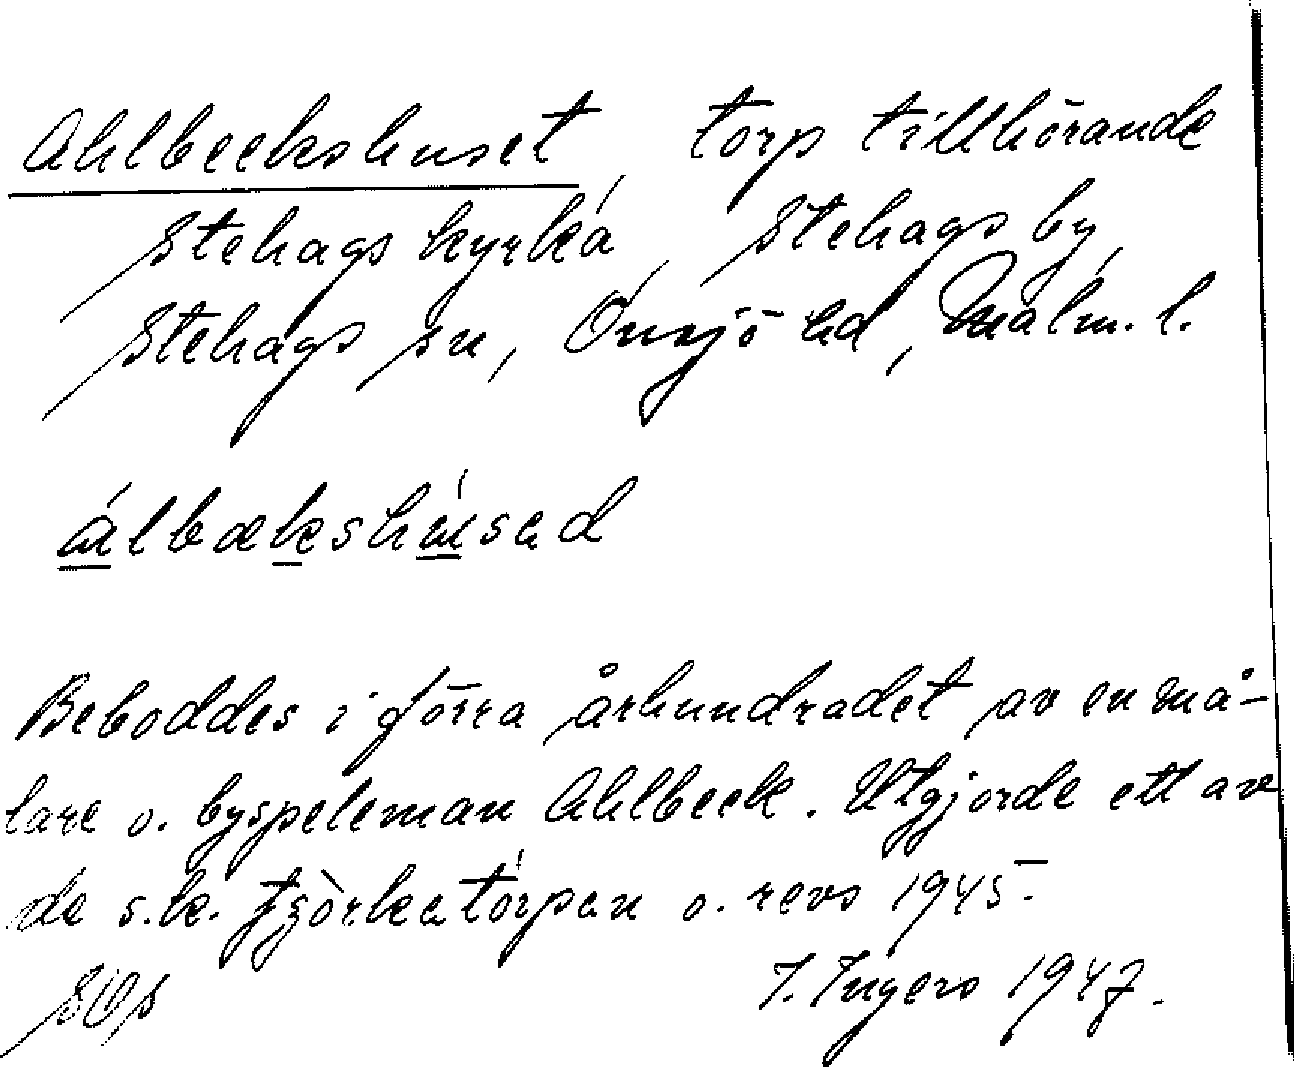 Ahlbeckshuset, torp tillhörande
Stehags kyrka, Stehags by,
Stehags sn, Onsjö hd, Malm. l.
álbækshúsad
Beboddes i förra århundradet av en må-
lare o. byspeleman Ahlbeck. Utgjorde ett av
de s.k. tjörketorpen o. revs 1945.
I. Ingers 1947.